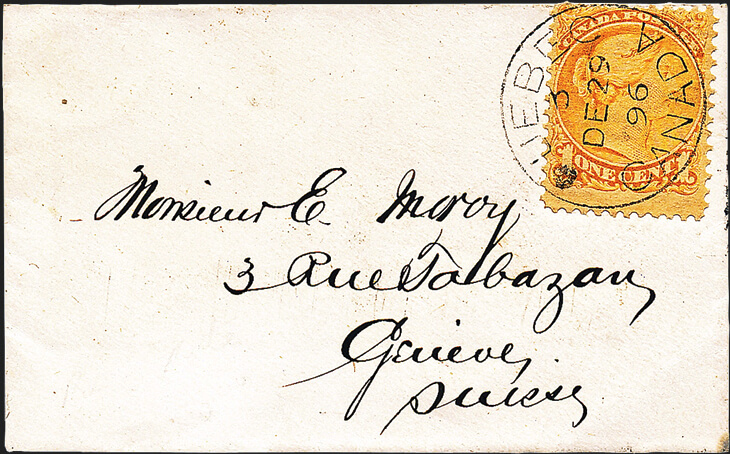 CANADA POSTAGE
ONE CENT
QUEBEC
3
DE 29
96
CANADA
Monsieur E Moroy
3 Rue Tabazan
Genève
Suisse